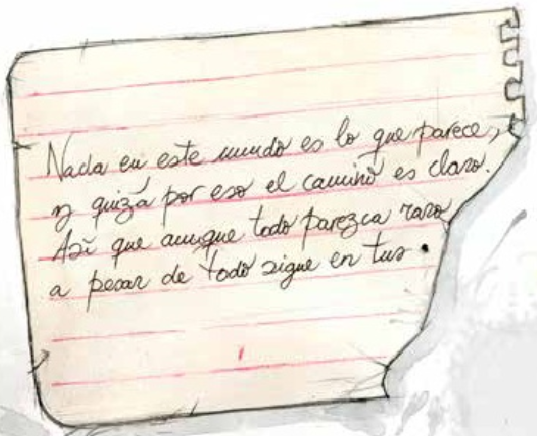 Nada en este mundo es lo que parece,
y quizá por eso el camino es claro.
Así que aunque todo parezca raro
a pesar de todo sigue en tus